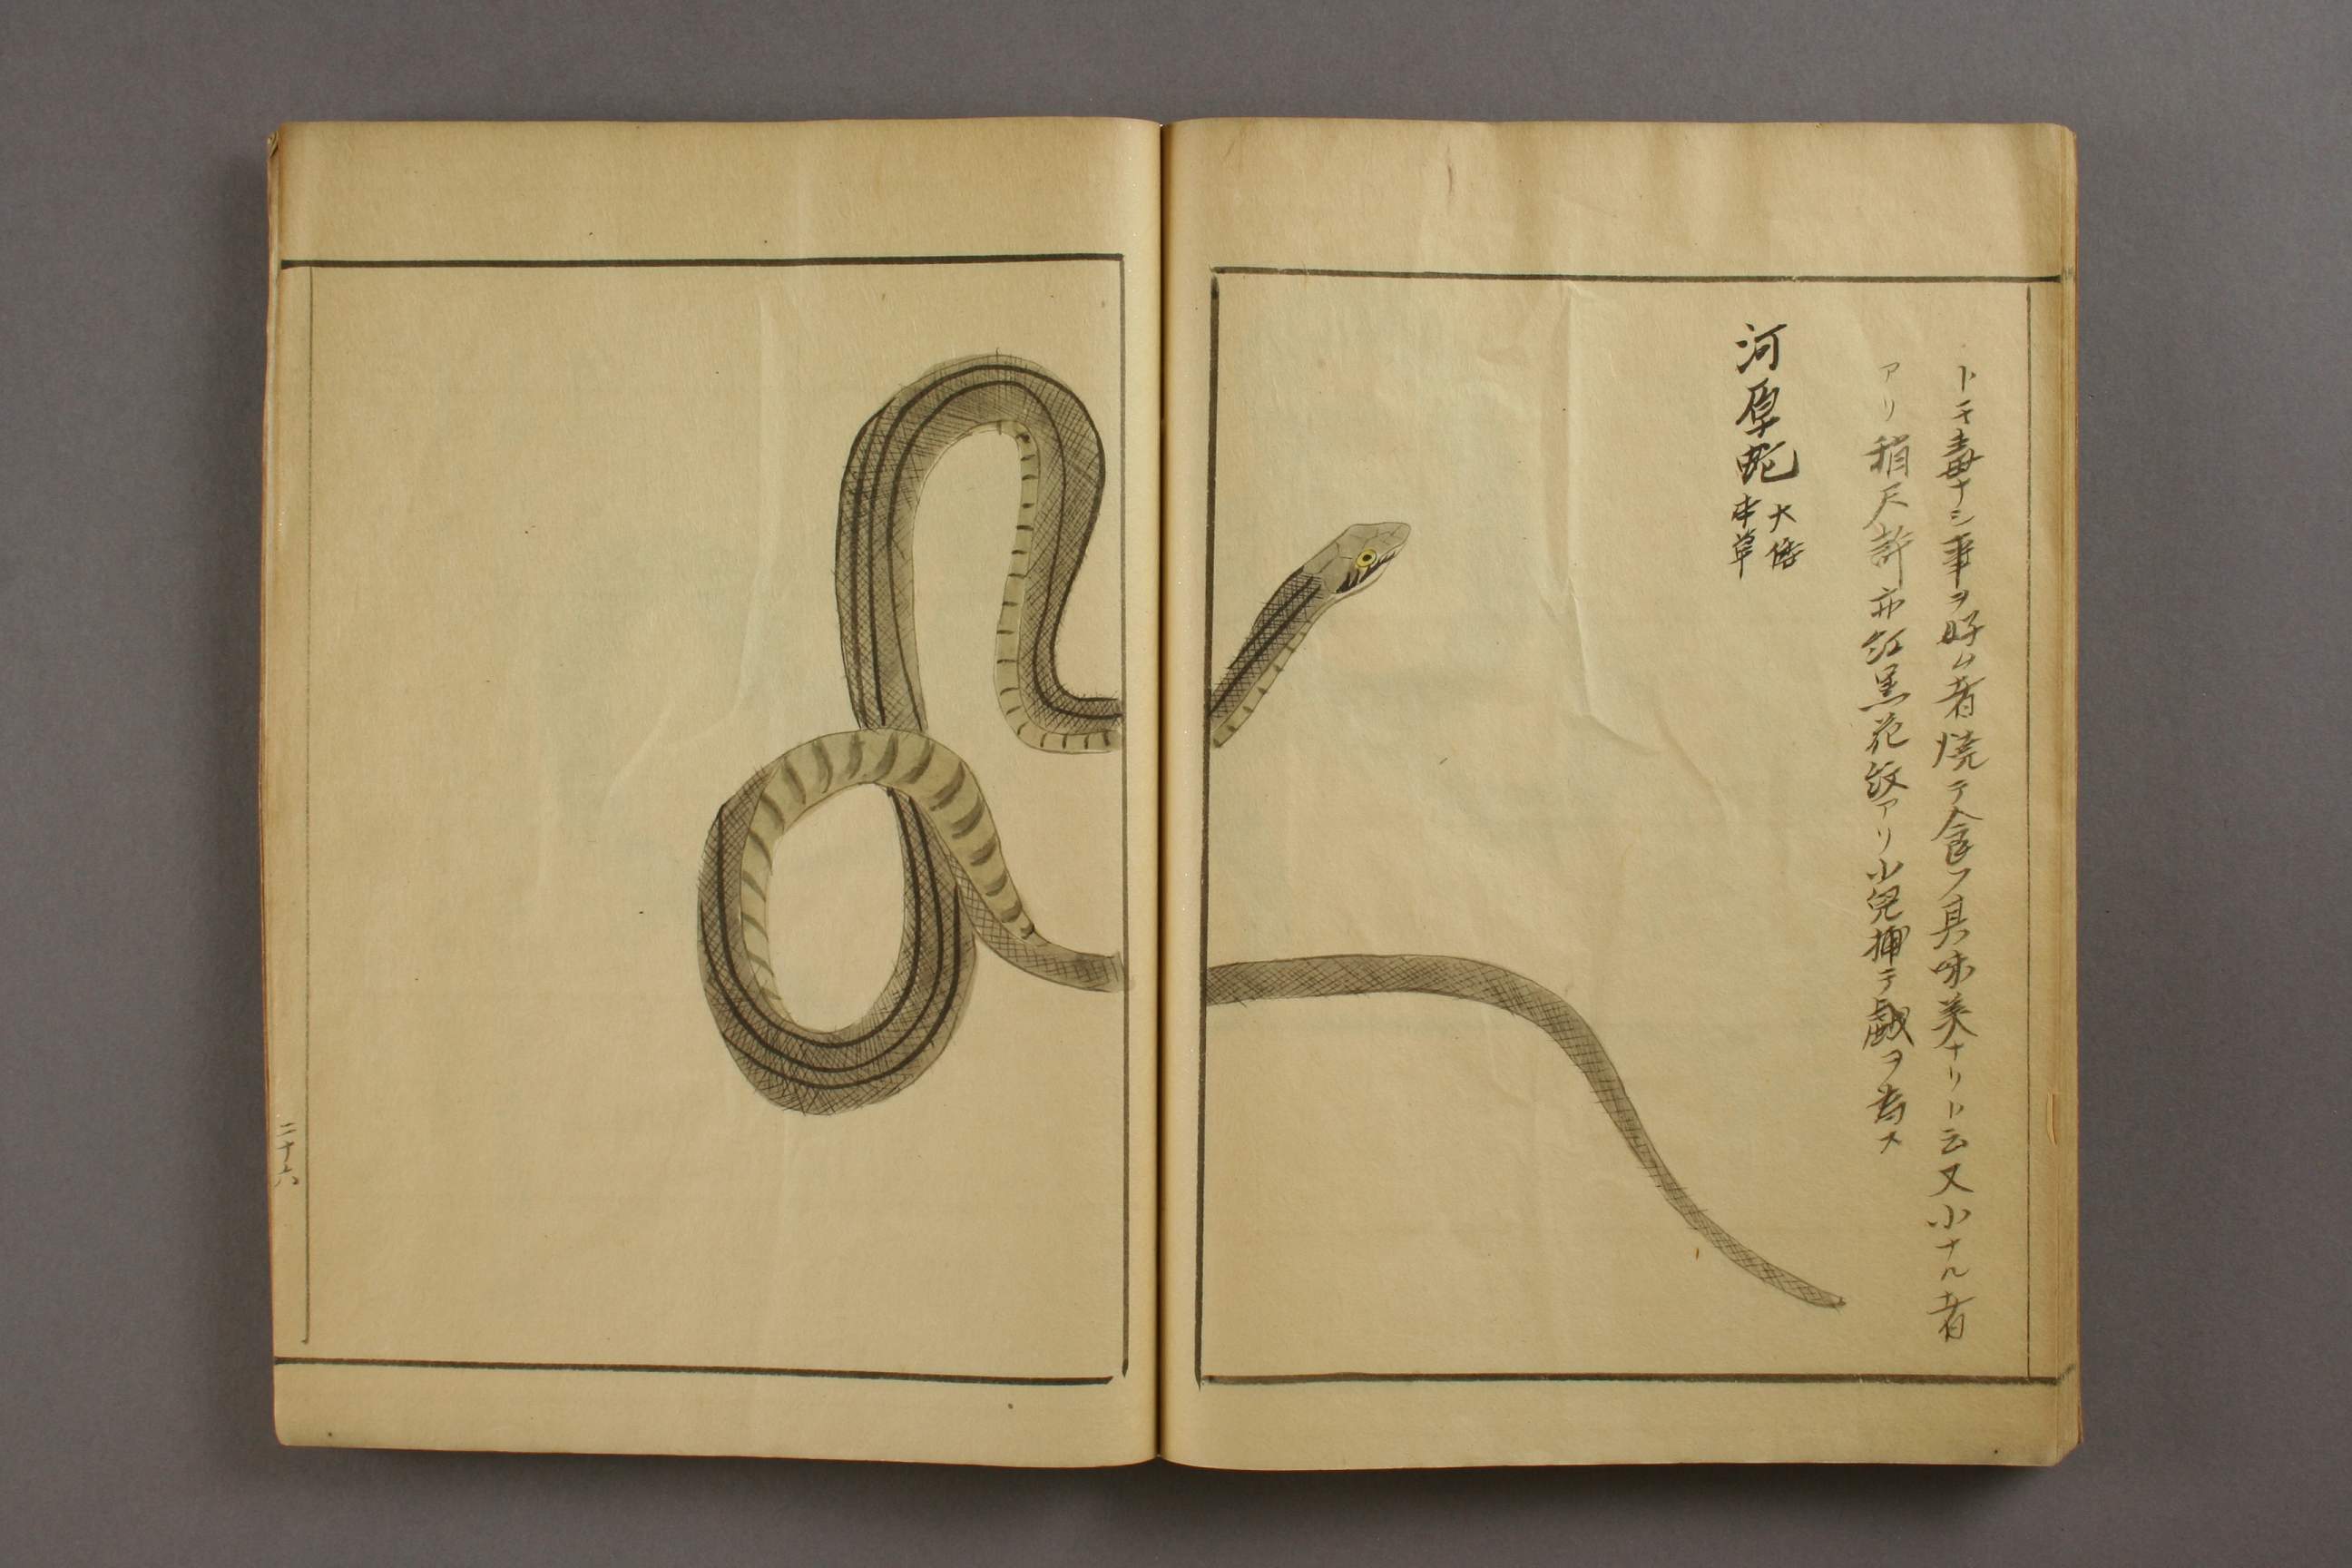 トモ毒ナシ事ヲ好ム者焼テ食フ其味美ナリト云又小ナル者
アリ稍尺許亦紅黒花紋アリ小兒捕テ戯ヲ為ス
河原蛇
大倭
本草
二十六